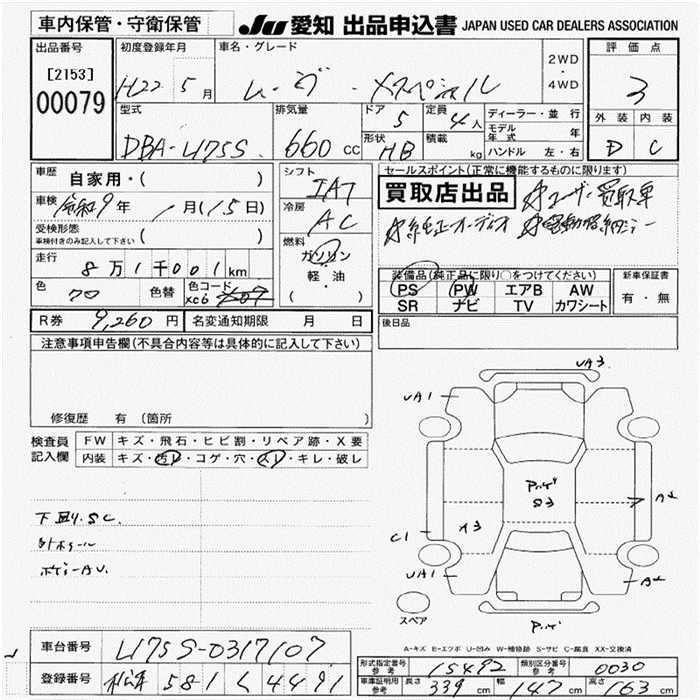 車内保管・守衛保管
JU 愛知 出品申込書 JAPAN USED CAR DEALERS ASSOCIATION
出品番号
[2153]
00079
初度登録年月
H22 5月
車名・グレード
ムーヴ・Xスペシャル
2WD
・
4WD
評価点
3
外装 内装
D C
型式
DBA-L175S
排気量
660 CC
ドア
5
定員
4人
形状
HB
積載
kg
ディーラー・並行
モデル年式 年
ハンドル 左・右
車歴 自家用・( )
車検 令和9年 1月(15日)
受検形態
車検付きのみ記入して下さい ( )
走行
8万1千001km
色
色替
色コード
シフト
IAT
冷房
AC
燃料
ガソリン
軽・油
( )
セールスポイント(正常に機能するものに限り)
買取店出品
#ユーザー買取車
#純正オーディオ #電動格納ミラー
装備品(純正品に限り○をつけてください)
PS PW エアB AW
SR ナビ TV カワシート
新車保証書
有・無
R券 9,260円 名変通知期限 月 日
後日品
注意事項申告欄(不具合内容等は具体的に記入して下さい)
修復歴 有(箇所
検査員記入欄
FW キズ・飛石・ヒビ割・リペア跡・X要
内装 キズ・汚レ・コゲ・穴・スレ・キレ・破レ
下回り.SC.
外ホイール
ボデーAU.
UA3.
UA1
C1
A3
UA1
A2
A2
S3
スペア
A-キズ E-エクボ U-凹み W-補修跡 S-サビ C-腐食 XX-交換済
車台番号 L175S-0317107
登録番号 581 く 4491
形式指定番号 参考 15492
類別区分番号 参考 0030
車庫証明用 参考 長さ 339 cm 幅 147 cm 高さ 163 cm